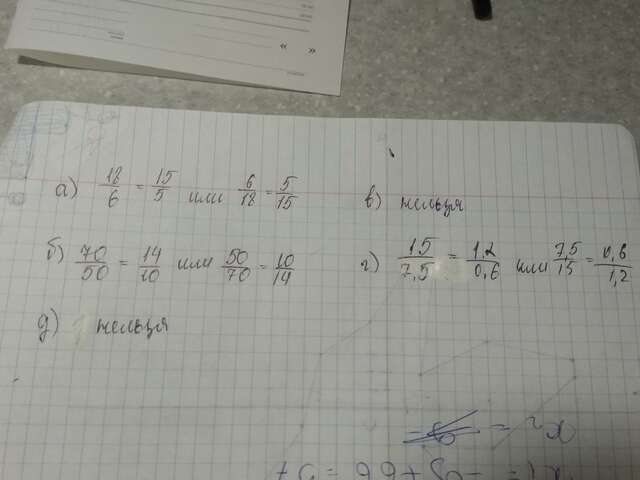 а) 18/6 = 15/5 или 6/18 = 5/15
в) нельзя
б) 70/50 = 14/10 или 50/70 = 10/14
г) 1,5/7,5 = 1,2/0,6 или 7,5/15 = 0,6/1,2
д) нельзя